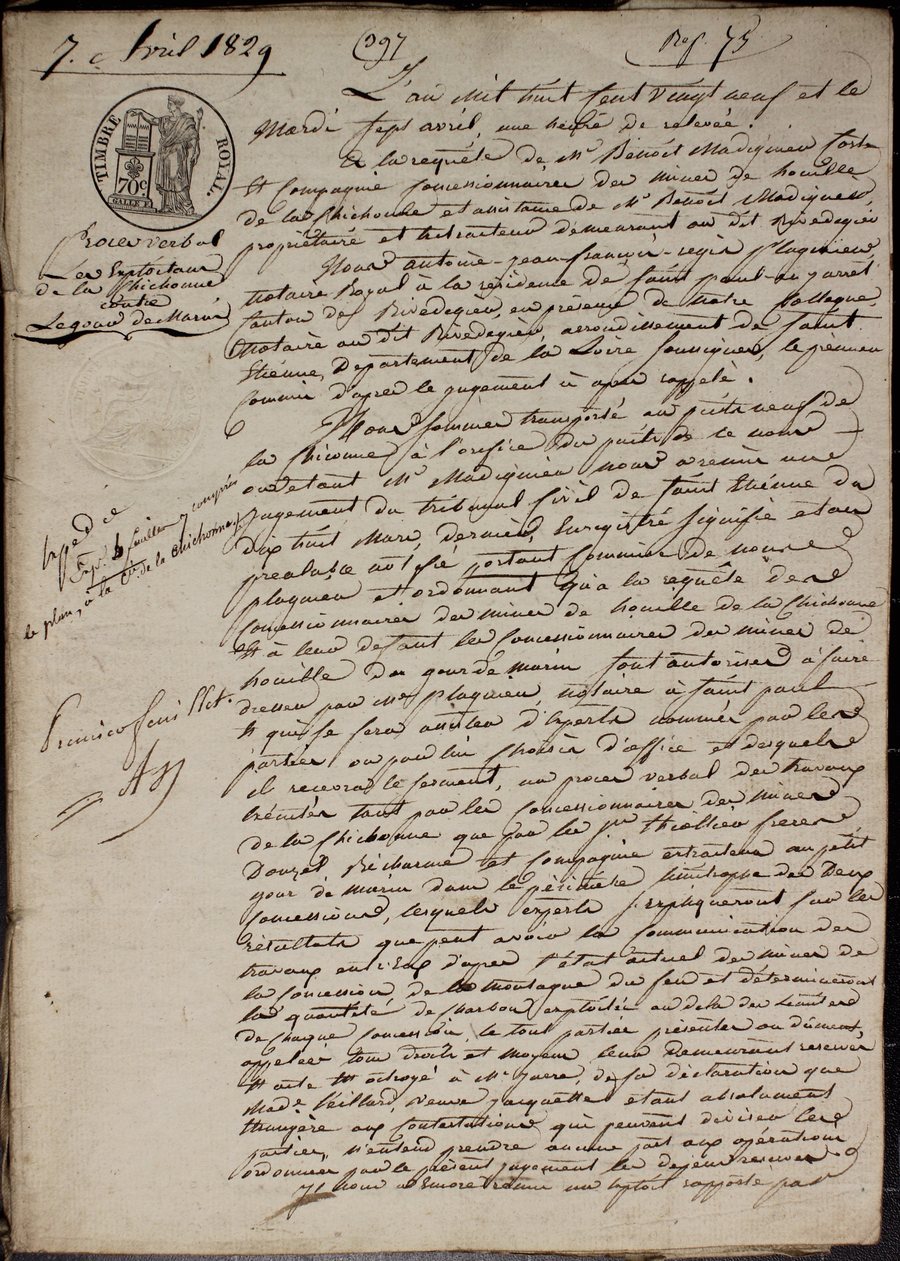 7. e Avril 1829
397
Rep. 73
TIMBRE ROYAL.
70c.
Procès verbal
Les Exploitans
de la Chichonne
contre
Le gour de Marin
L'an Mil huit Cent Vingt neuf et le
Mardi Sept avril, une heure de relevée.
A la requête de Mr Benoit Madignier
et Compagnie Concessionnaires des mines de houille
de la Chichonne et assistance de Mr Benoit Madignier,
propriétaire et extracteur demeurant au dit Rivedegier
Nous antoine-jean-françois-regis Plagnieu,
notaire Royal à la résidence de Saint paul en jarret
Canton de Rivedegier, en présence de notre Collègue
Notaire au dit Rivedegier, arrondissement de Saint
Etienne, Departement de la Loire soussignés, le premier
Commis d'après le jugement ci après rappelé.
Nous sommes transporté au puits neuf de
la Chiconne à l'orifice du puits de ce nom
ou etant Mr Madignier nous a remis un
jugement du tribunal Civil de Saint Etienne du
dix huit Mars dernier, Enregistré signifié et au
prealable notifié portant Commise de nous
plagnieu et ordonnant qu'a la requête des
Concessionnaires des mines de houille de la Chichonne
et à leur defaut les Concessionnaires des mines de
houille du gour de marin sont autorisés à faire
dresser par Me plagnieu, notaire à Saint paul
et qui se fera assister d'Experts nommés par les
parties ou par lui Choisis d'office et desquels
il recevra le serment, un procès verbal des travaux
Exécutés tant par les Concessionnaires des mines
de la Chichonne que par les Srs thiollier freres
Donzel Richarme et Compagnie extracteurs au petit
gour de marin dans le périmètre limitrophe des Deux
Concessions, lesquels experts s'expliqueront sur les
résultats que peut avoir la Communication des
travaux entr'eux d'après l'état actuel des mines de
la Concession de la montagne du feu et détermineront
la quantité de Charbon exploitée au dela des limites
de Chaque Concession, le tout parties présentes ou dûment
appelées tous droits et moyens leur Demeurant reservés
Et acte Est octroyé à Mr Juere, de sa déclaration que
Made Veillard, Veuve Jacquette etant absolument
Etrangère aux Contestations qui peuvent diviser les
parties, n'entend prendre aucune part aux opérations
ordonnées par le présent jugement les dépens reservés
Il nous a Encore remis un Exploit rapporté par
Expédié
Exp. 4 feuilles y compris
le plan, à la Cie de la Chichonne
Premier feuillet.